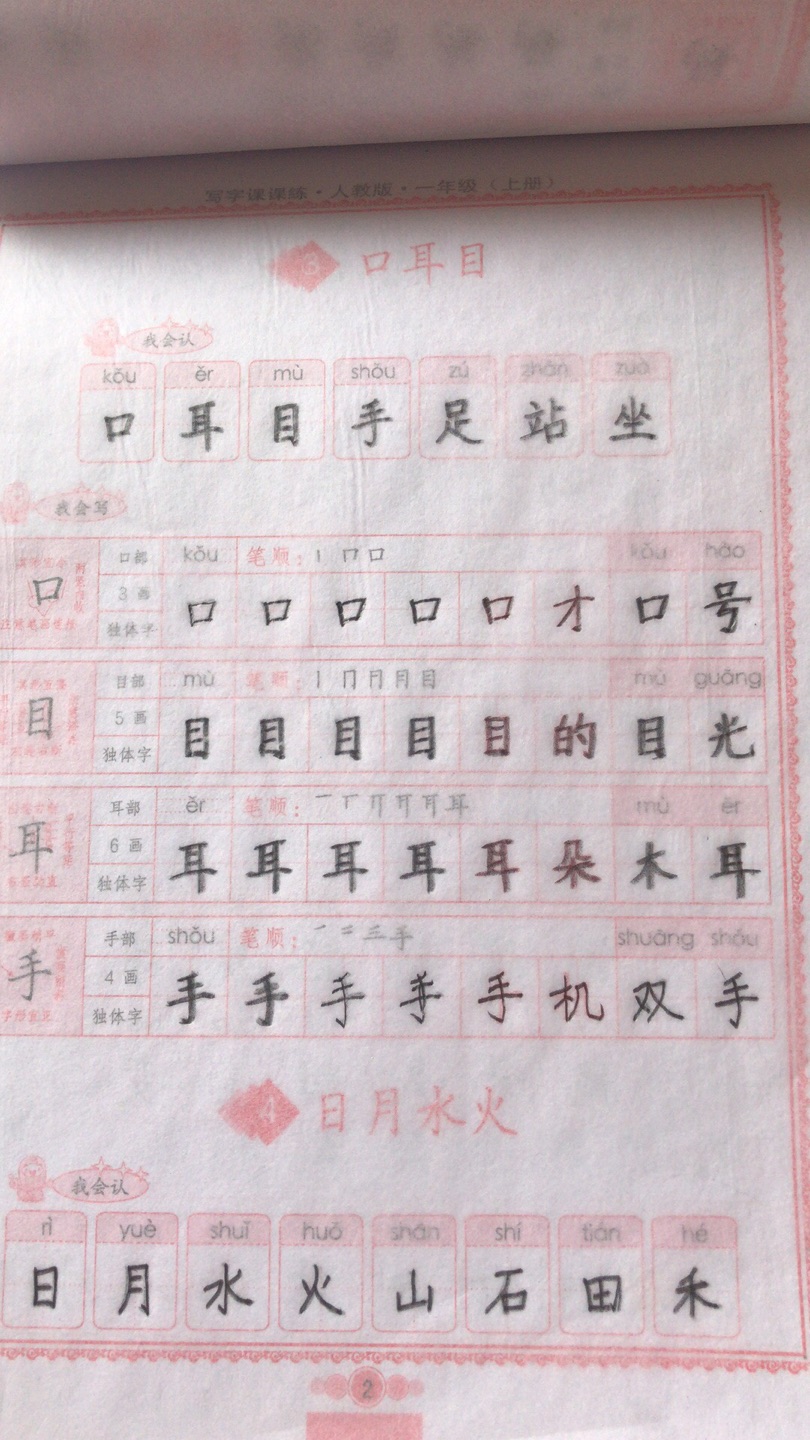 写字课课练·人教版·一年级（上册）
3 口耳目
我会认
kǒu ěr mù shǒu zú zhàn zuò
口 耳 目 手 足 站 坐
我会写
口部 kǒu 笔顺： 丨 𠃍 口 kǒu hào
口 3画 口 口 口 口 口 才 口 号
独体字
目部 mù 笔顺： 丨 冂 月 目 mù guāng
目 5画 目 目 目 目 目 的 目 光
独体字
耳部 ěr 笔顺： 一 丅 耳 mù ěr
耳 6画 耳 耳 耳 耳 耳 朵 木 耳
独体字
手部 shǒu 笔顺： 一 二 三 手 shuāng shǒu
手 4画 手 手 手 手 手 机 双 手
独体字
4 日月水火
我会认
rì yuè shuǐ huǒ shān shí tián hé
日 月 水 火 山 石 田 禾
2